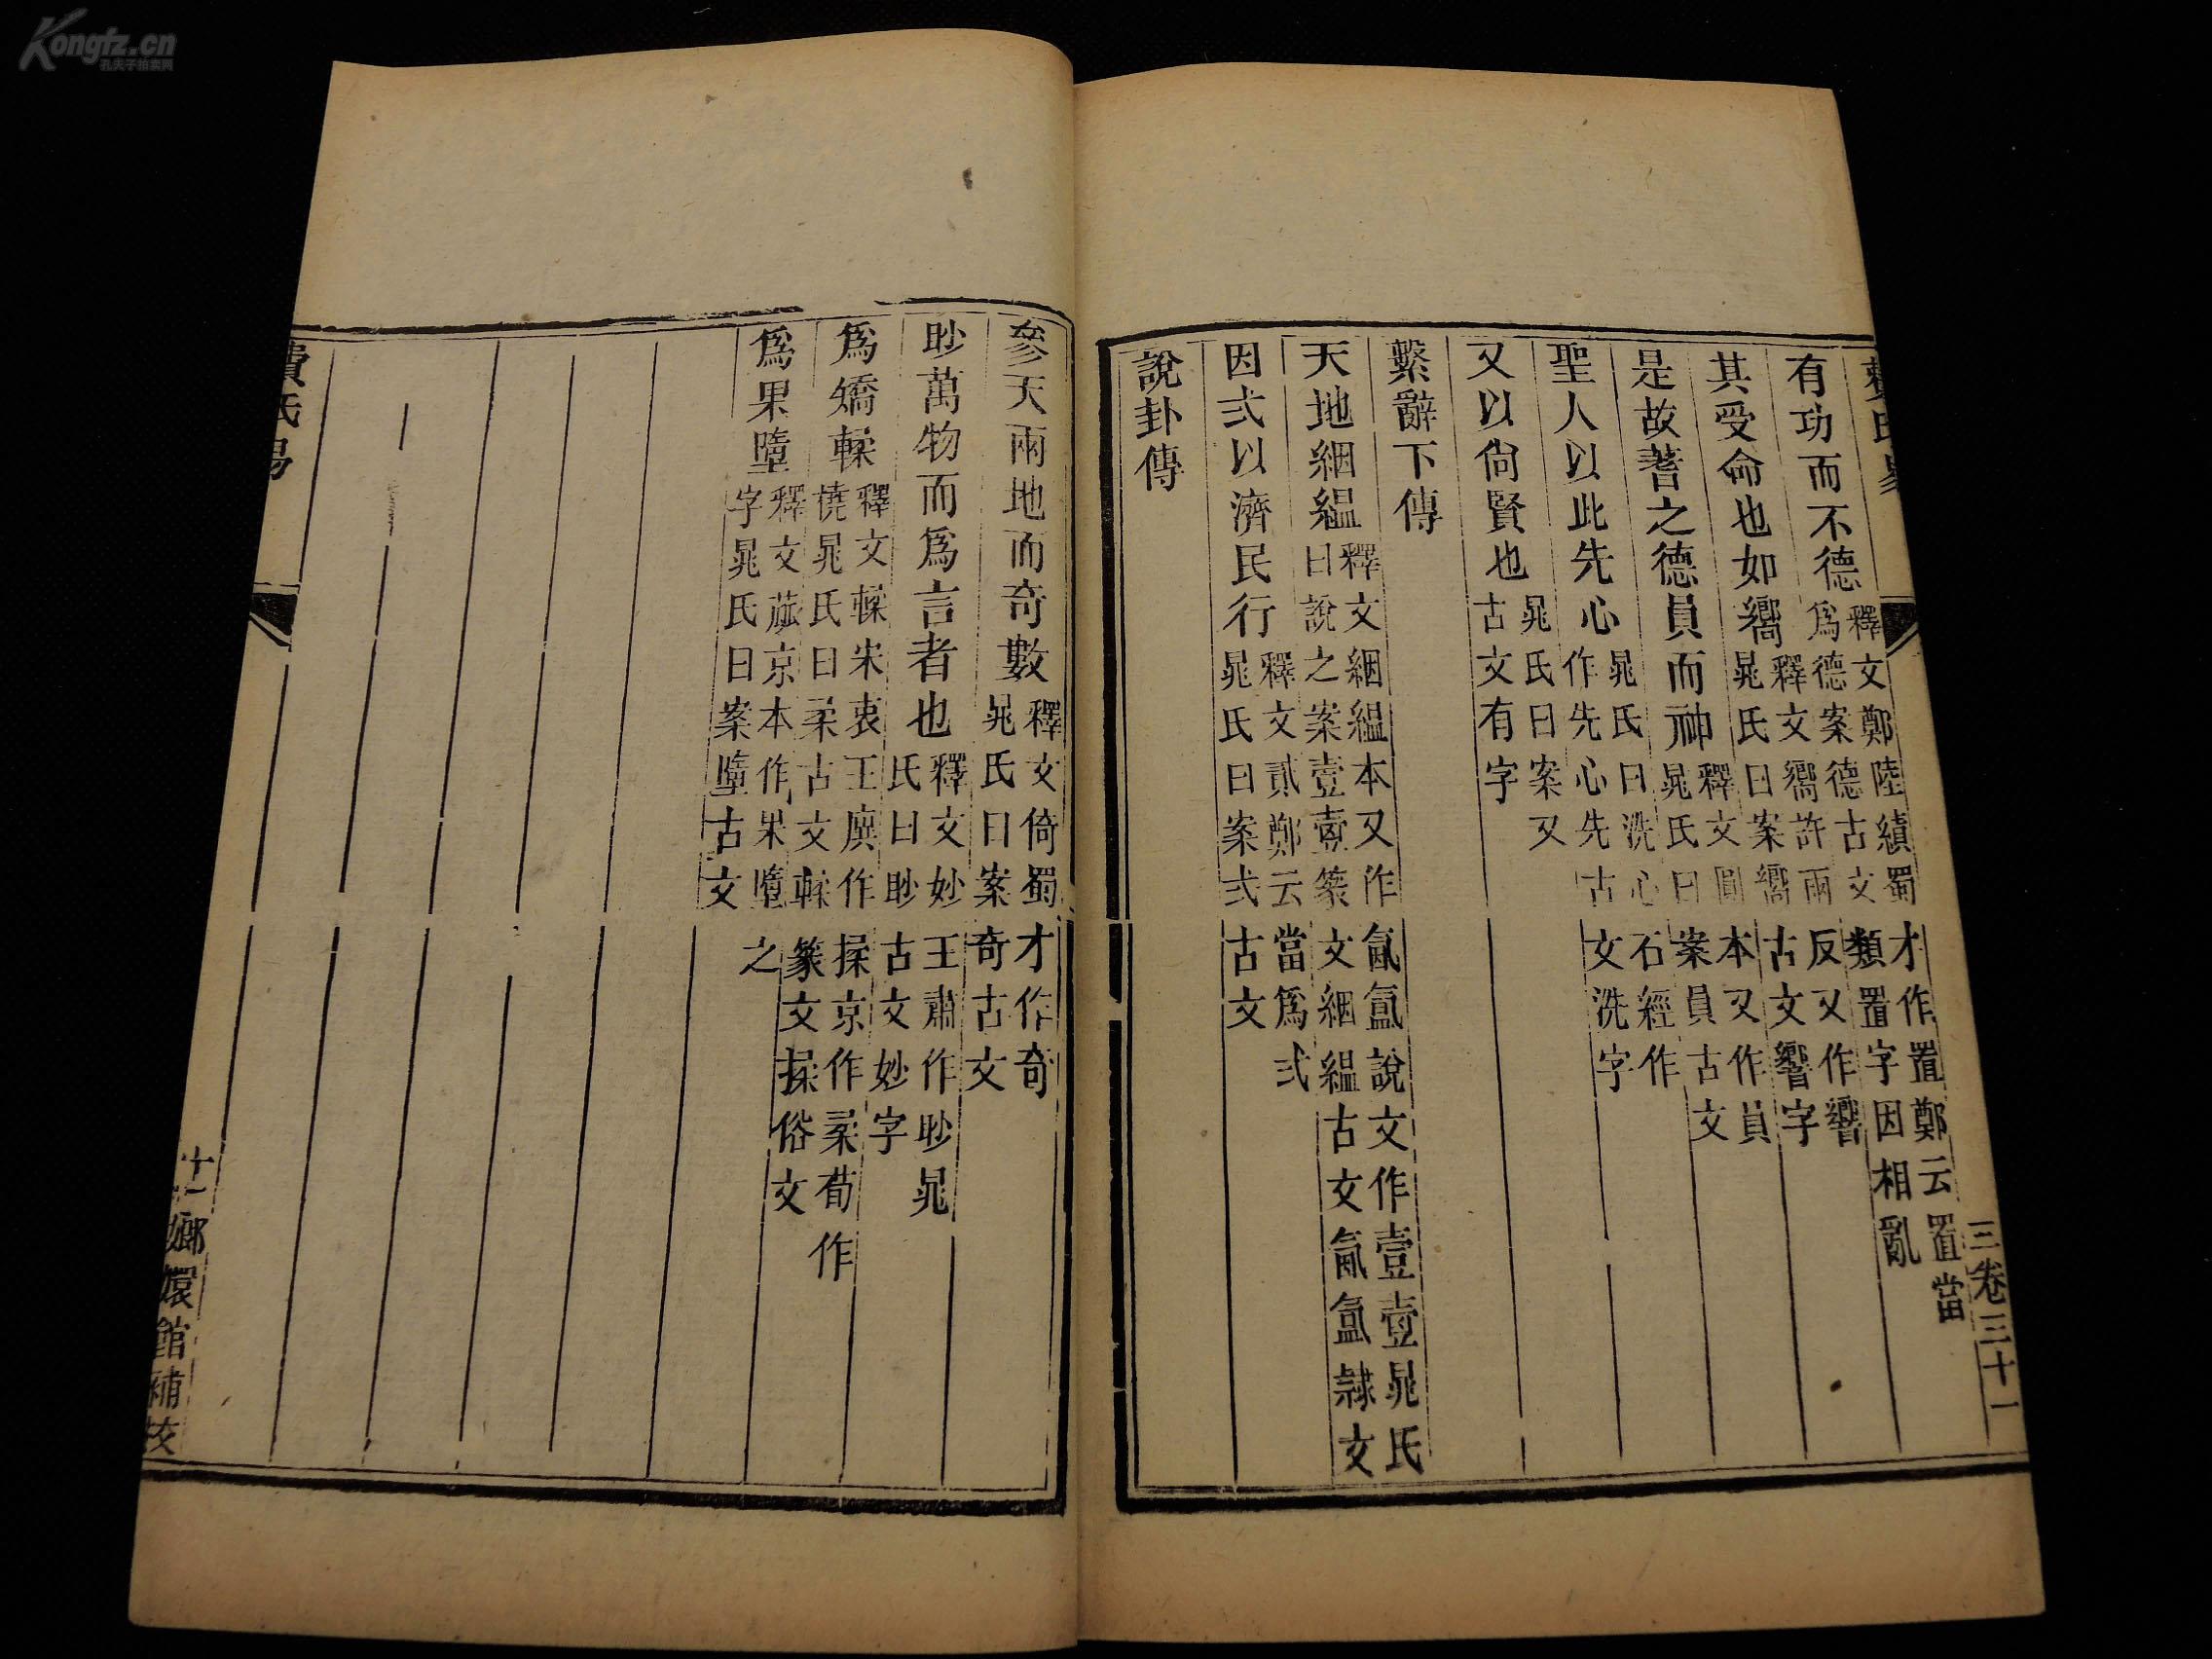 Kongfz.cn
孔夫子拍卖网
三卷三十一
有功而不德釋文鄭陸績蜀才作置鄭云置當
爲德案德古文類置字因相亂
其受命也如嚮釋文嚮許兩反又作響
晁氏曰案嚮古文響字
是故蓍之德員而神釋文圓本又作員
晁氏曰案員古文
聖人以此先心晁氏曰洗心石經作
作先心先古文洗字
又以尙賢也晁氏曰案又
古文有字
繫辭下傳
天地絪縕釋文絪縕本又作氤氳說文作壹壹晁氏
曰說之案壹壺篆文絪縕古文氤氳隷文
因弍以濟民行釋文貳鄭云當爲弍
晁氏曰案弍古文
說卦傳
參天兩地而奇數釋文倚蜀才作奇
晁氏曰案奇古文
眇萬物而爲言者也釋文妙王肅作眇晁
氏曰眇古文妙字
爲矯輮釋文輮宋衷王廙作揉京作柔荀作
橈晁氏曰柔古文輮篆文揉俗文
爲果墮釋文蓏京本作果墮之
字晁氏曰案墮古文
費氏易
十一
嫏嬛館補校